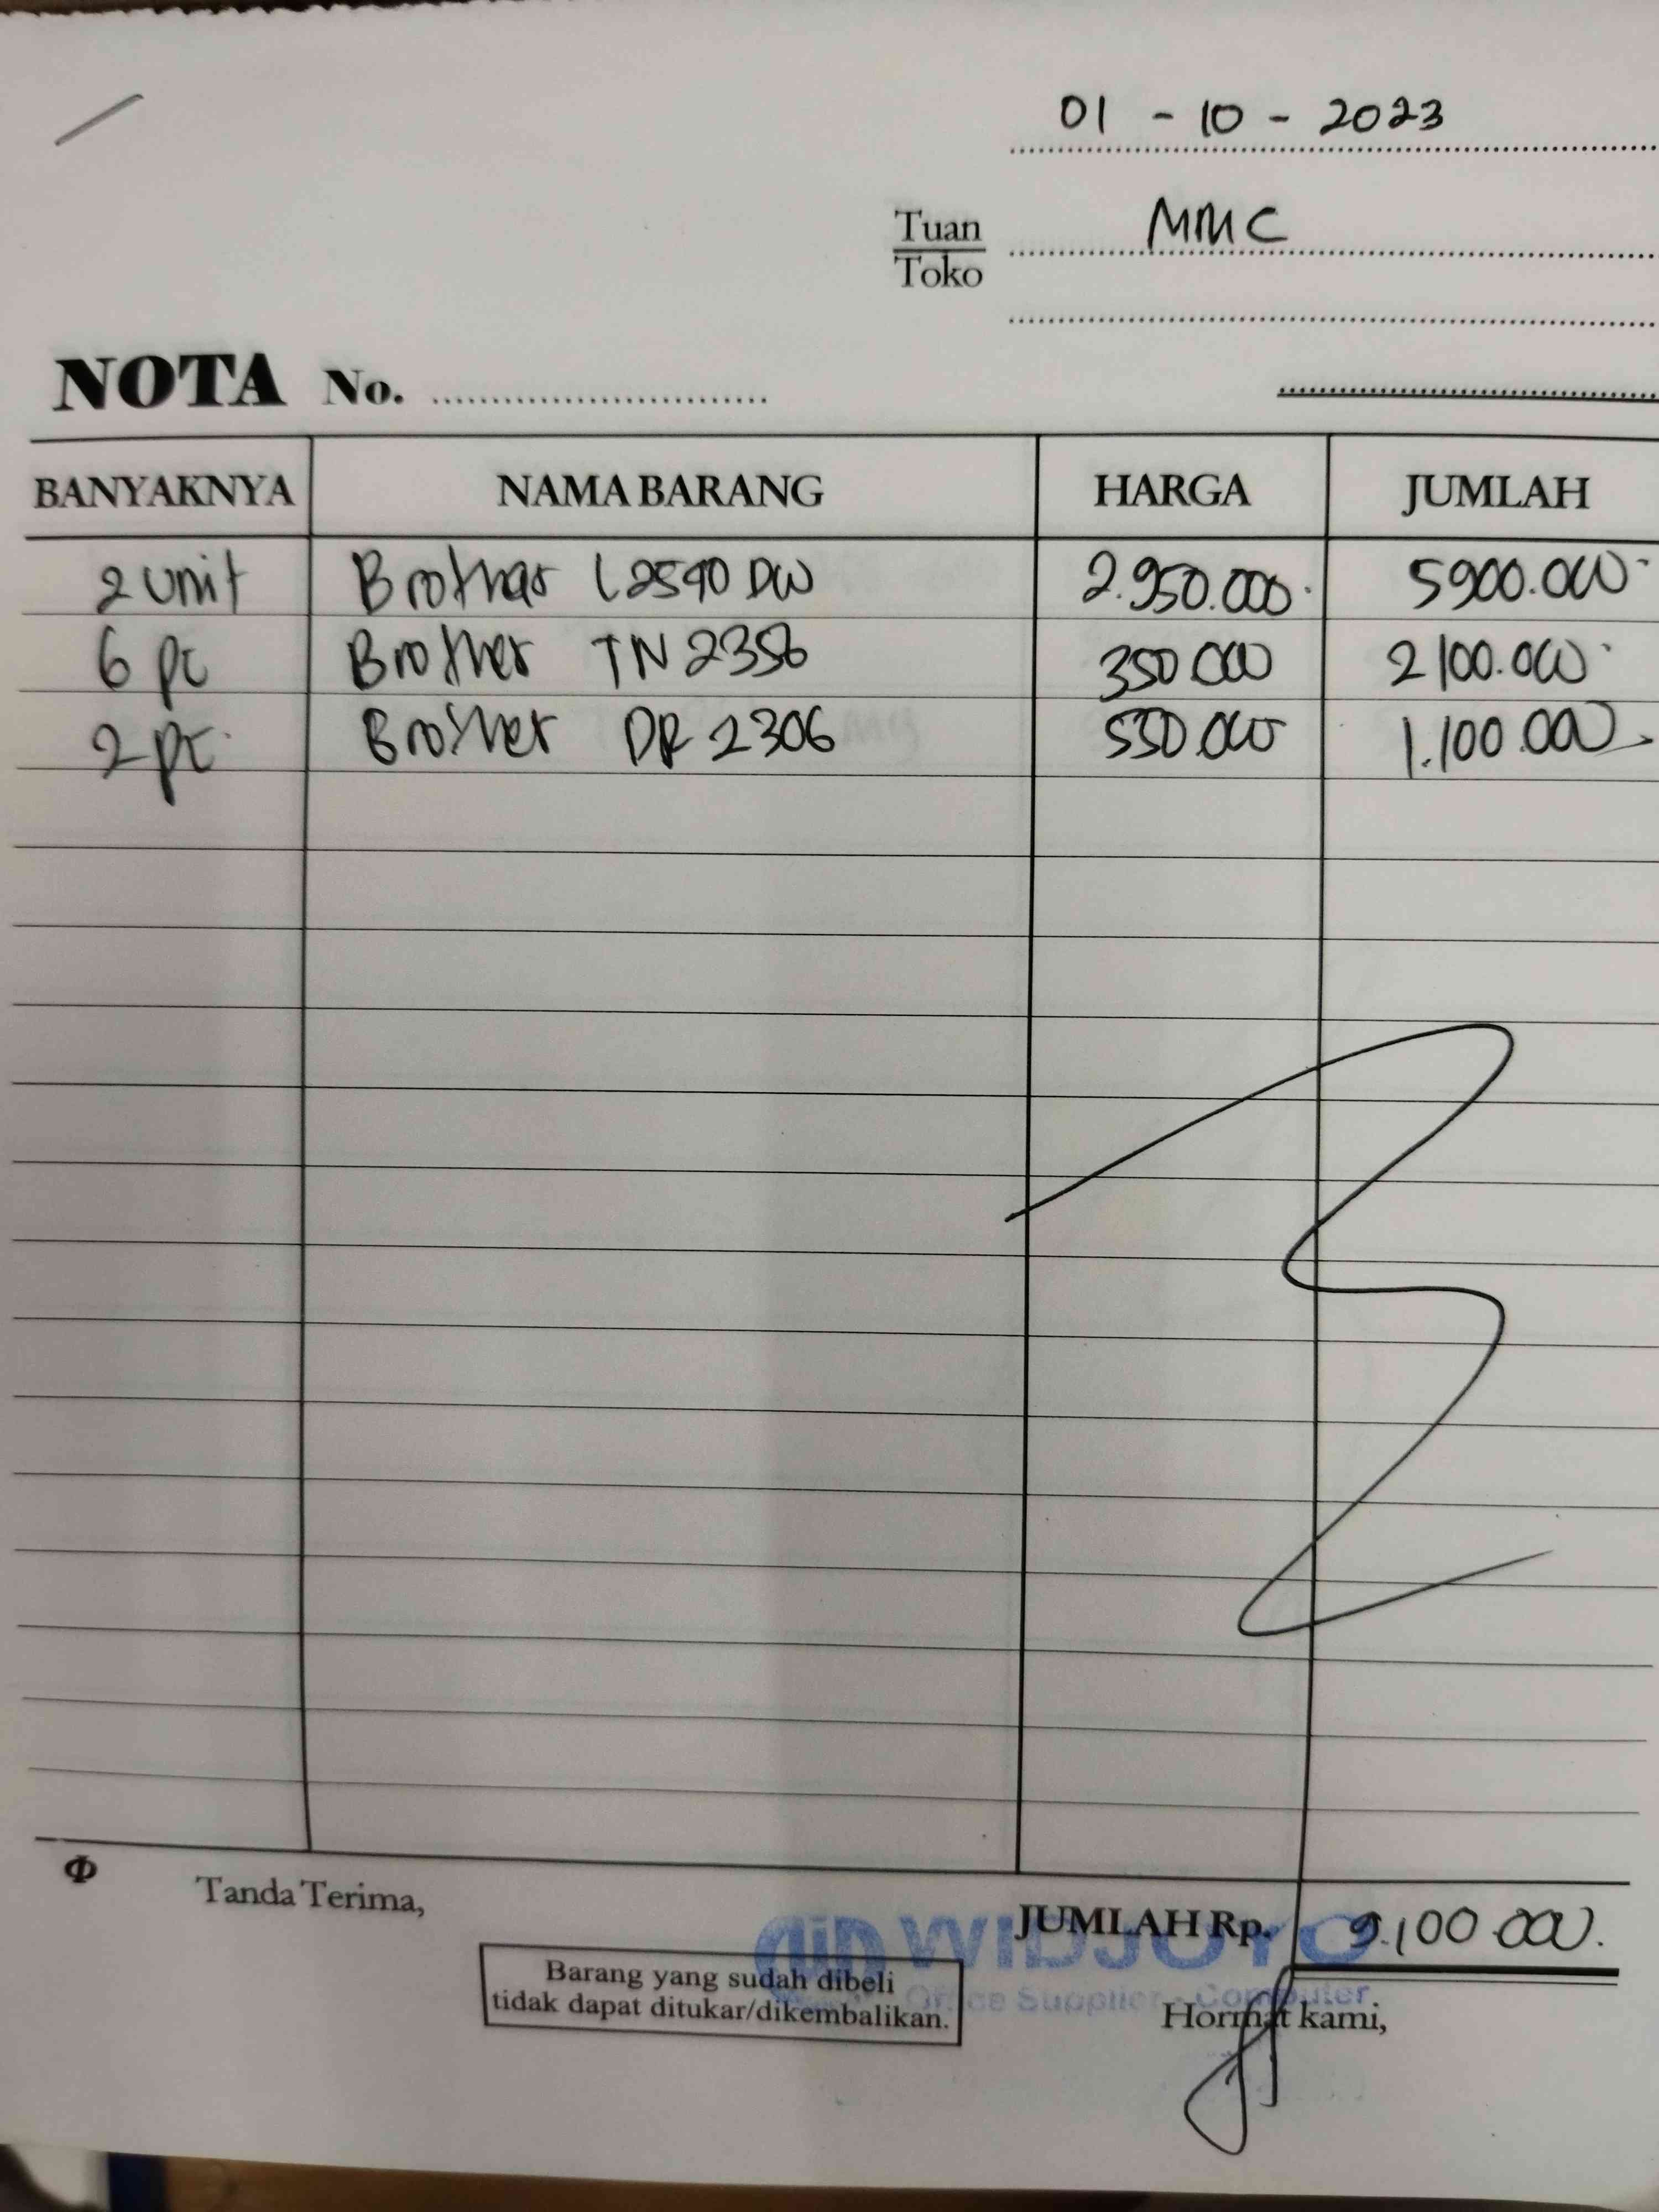 01 - 10 - 2023
Tuan MMC
Toko
NOTA No.
BANYAKNYA NAMA BARANG HARGA JUMLAH
2 unit Brother L2540 DW 2.950.000 5900.000
6 pc Brother TN 2356 350.000 2100.000
2 pc Brother DR 2306 550.000 1.100.000
Tanda Terima, JUMLAH Rp. 9.100.000.
WIDJOYO
Barang yang sudah dibeli
tidak dapat ditukar/dikembalikan.
Office Supplier - Computer
Hormat kami,